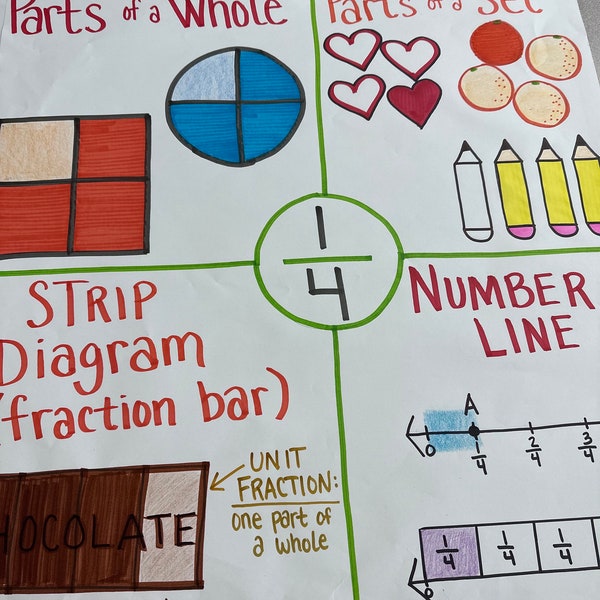 Parts of a Whole
Parts of a Set
1
4
STRIP
Diagram
(fraction bar)
CHOCOLATE
UNIT
FRACTION:
one part of
a whole
NUMBER
LINE
A
0 1/4 2/4 3/4
1/4 1/4 1/4
0